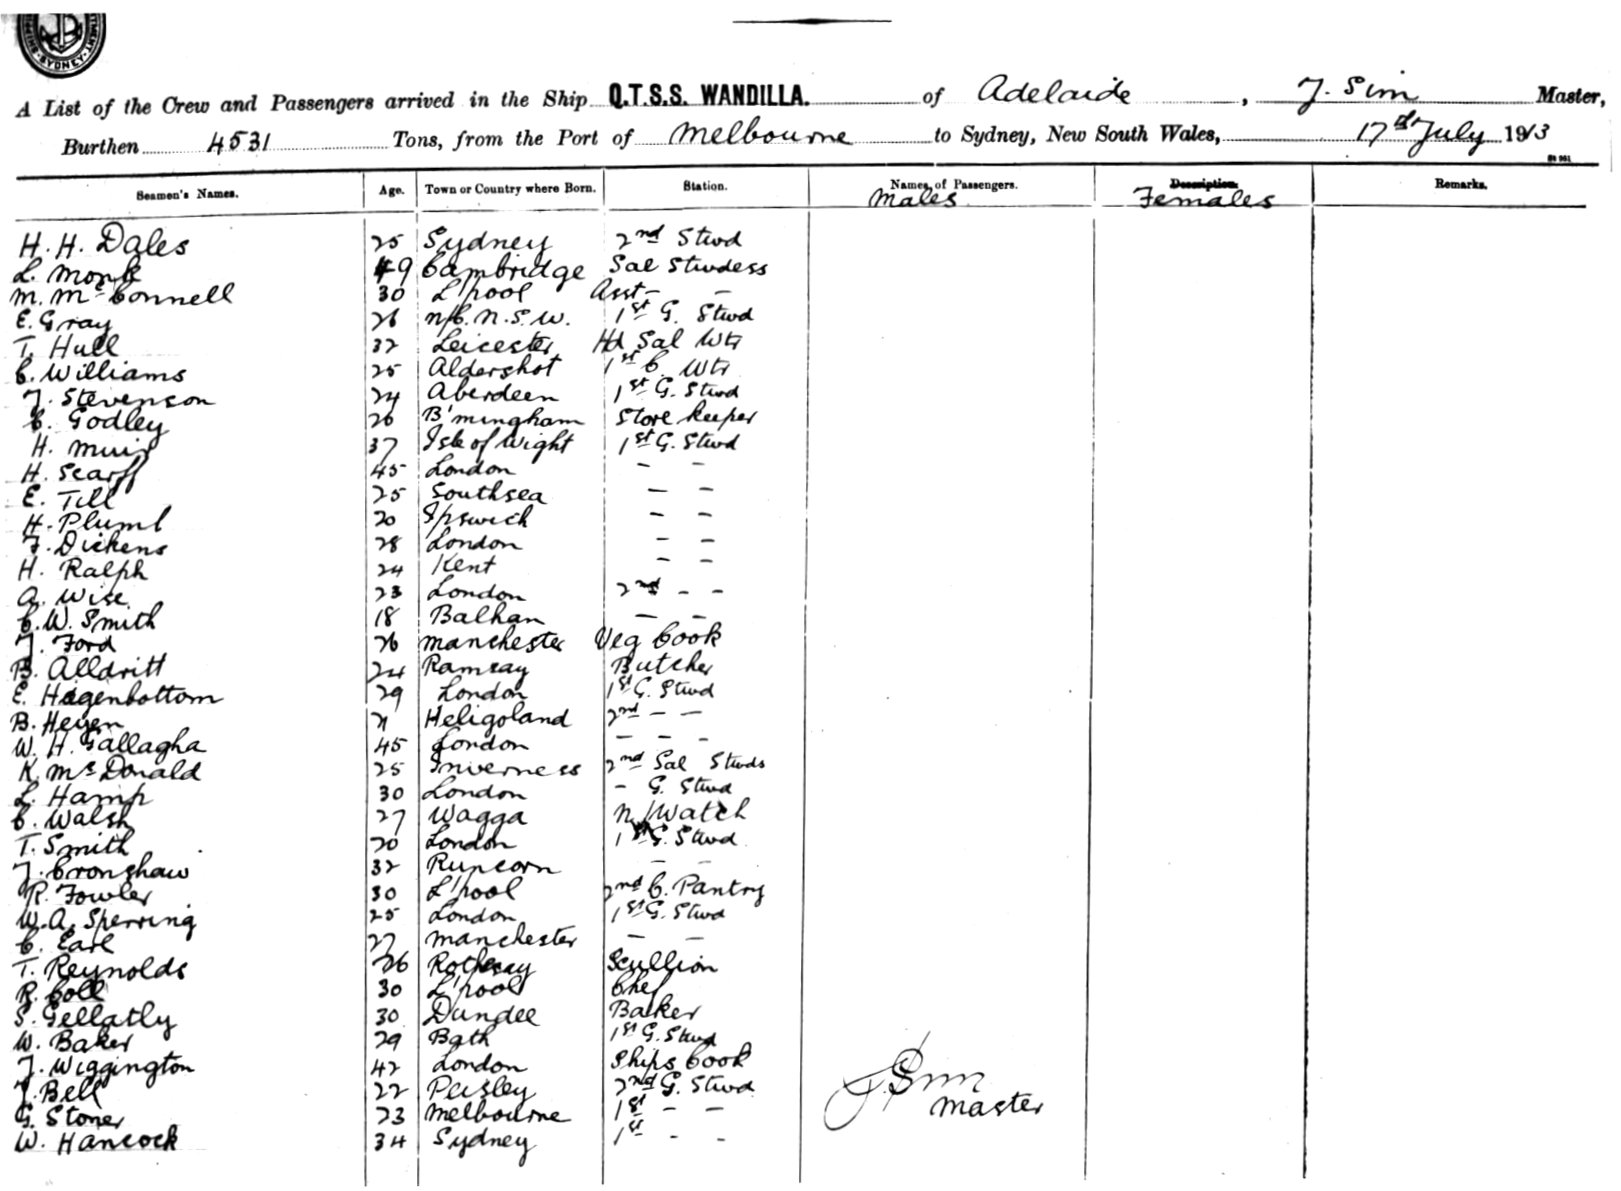 SYDNEY
A List of the Crew and Passengers arrived in the Ship Q.T.S.S. WANDILLA. of Adelaide, J. Sim Master,
Burthen 4531 Tons, from the Port of Melbourne to Sydney, New South Wales, 17th July 1913
Seamen's Names. Age. Town or Country where Born. Station. Names of Passengers. Description. Remarks.
Males Females
H. H. Dales 25 Sydney 2nd Stwd
L. Monk 49 Cambridge Sal Stwdess
M. McConnell 30 L'pool Asst - -
E. Gray 26 N/C. N.S.W. 1st G. Stwd
T. Hull 32 Leicester Hd Sal Wtr
C. Williams 25 Aldershot 1st C. Wtr
J. Stevenson 24 Aberdeen 1st G. Stwd
C. Godley 26 B'mingham Store keeper
H. Muir 37 Isle of Wight 1st G. Stwd
H. Scarff 45 London - -
E. Till 25 Southsea - -
H. Plumb 20 Ipswich - -
F. Dickens 28 London - -
H. Ralph 24 Kent - -
A. Wise 23 London 2nd - -
C. W. Smith 18 Balham - -
J. Ford 26 Manchester Veg Cook
B. Alldritt 24 Ramsay Butcher
E. Hagenbottom 29 London 1st G. Stwd
B. Heyen 21 Heligoland 2nd - -
W. H. Gallagha 45 London - - -
K. McDonald 25 Inverness 2nd Sal Stwds
L. Hamp 30 London - G. Stwd
C. Walsh 27 Wagga N/Watch
T. Smith 20 London 1st G. Stwd
J. Cronshaw 32 Runcorn - -
R. Fowler 30 L'pool 2nd C. Pantry
W. A. Sperring 25 London 1st G. Stwd
C. Earl 27 Manchester - -
T. Reynolds 26 Rothesay Scullion
R. Coll 30 L'pool Chef
S. Gellatly 30 Dundee Baker
W. Baker 29 Bath 1st G. Stwd
J. Wiggington 42 London Ships Cook
J. Bell 22 Peisley 2nd G. Stwd
G. Stoner 23 Melbourne 1st - -
W. Hancock 34 Sydney 1st - -
J. Sim
Master